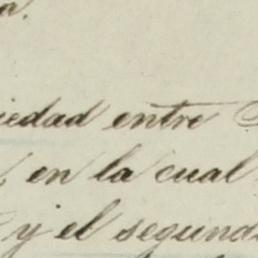 a.
iedad entre
en la cual
y el segund